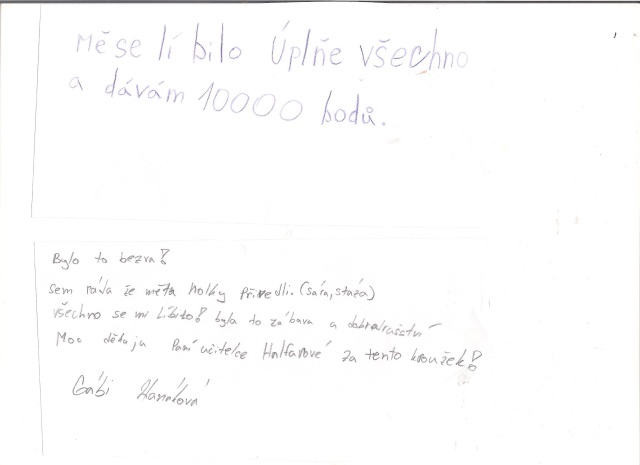 Mě se lí bilo Úplňe všechno
a dávám 10000 bodů.
Bylo to bezva!
sem ráda že měta holky přivedli. (sára, stáza)
všechno se mi líbilo! byla to zábava a dobrodružství
Moc děkuju Paní učitelce Halfarové za tento kroužek!
Gábi